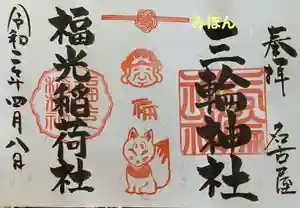 奉拝
名古屋
三輪神社
みほん
福光稲荷社
令和二年四月八日